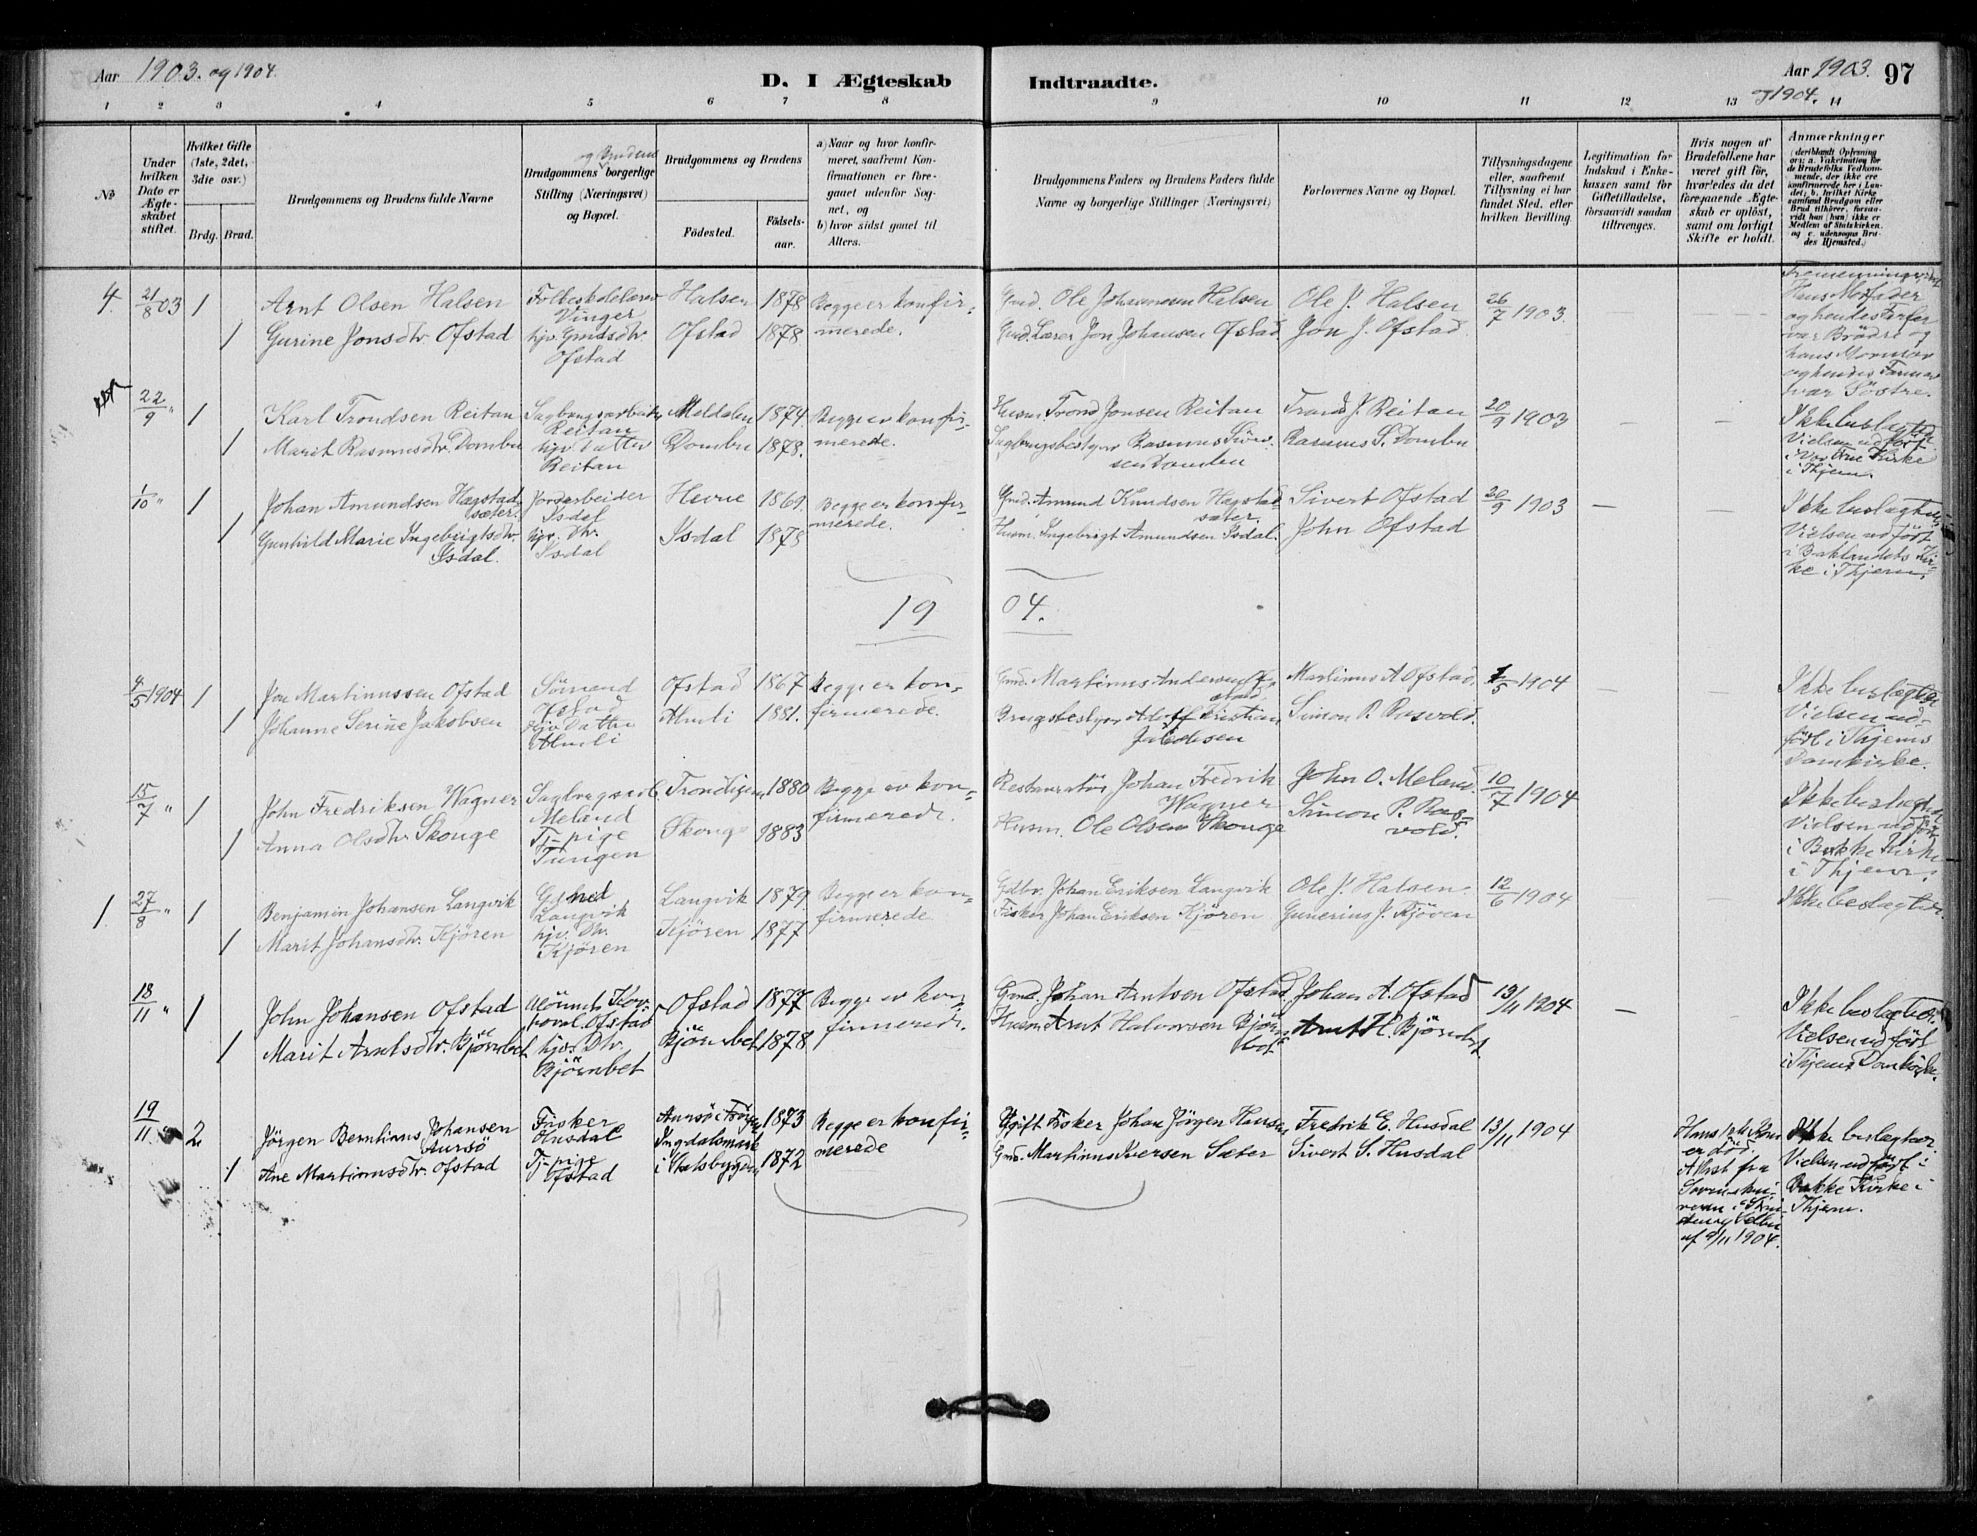 Aar 1903. og 1904.
D. I Ægteskab Indtraadte.
Aar 1903. 97
og 1904.
1 2 3 4 5 6 7 8 9 10 11 12 13 14
No
Under hvilken Dato er Ægteskabet stiftet.
Hvilket Gifte (1ste, 2det, 3die osv.)
Brdg. Brud.
Brudgommens og Brudens fulde Navne
Brudgommens og Brudens borgerlige Stilling (Næringsvei) og Bopæl.
Brudgommens og Brudens
Fødested.
Fødsels-aar.
a) Naar og hvor konfirmeret, saafremt Konfirmationen er foregaaet udenfor Sognet, og
b) hvor sidst gaaet til Alters.
Brudgommens Faders og Brudens Faders fulde Navne og borgerlige Stillinger (Næringsvei)
Forlovernes Navne og Bopæl.
Tillysningsdagene eller, saafremt Tillysning ei har fundet Sted, efter hvilken Bevilling.
Legitimation for Indskud i Enkekassen samt for Giftetilladelse, forsaavidt saadan tiltrænges.
Hvis nogen af Brudefolkene har været gift før, hvorledes da det foregaaende Ægteskab er opløst, samt om lovligt Skifte er holdt.
Anmærkninger
4. 21/8 03 1 Arnt Olsen Halsen Folkeskolelærer Vinger Halsen 1878 Begge er konfir-
1 Gurine Jonsdtr. Ofstad hjv. Gmdsdtr. Ofstad Ofstad 1878 merede.
Gmd. Ole Johannesen Halsen Ole J. Halsen 26/7 1903.
Gmd. Lærer Jon Johansen Ofstad. Jon J. Ofstad
Hans Morfader
og hendes Farfar
var Brødre og
hans Mormor
og hendes Farmor
var Søstre.
22/9 " 1 Karl Trondsen Reitan Sagbrugsarbeider Reitan Meldalen 1874 Begge er konfir-
1 Marit Rasmusdtr. Dombu hjv. Datter Reitan Dombu 1878. merede.
Husm. Trond Jonsen Reitan Trond J. Reitan 20/9 1903
Sagbrugsbestyrer Rasmus Simensen Dombu Rasmus S. Dombu
Ikke beslægtede
Vielsen udført
i Vor Frue Kirke
i Thjem.
1/10 " 1 Johan Amundsen Hagstadsæter. Jordarbeider Isdal Hevne 1869. Begge er konfir-
1 Gunhild Marie Ingebrigtsdtr. Isdal. hjv. Dtr. Isdal Isdal 1878 merede.
Gmd. Amund Knudsen Hagstadsæter. Sivert Ofstad 20/9 1903
Husm. Ingebrigt Amundsen Isdal. John Ofstad
Ikke beslægtede
Vielsen udført
i Baklandets Kir-
ke i Thjem.
19 04.
4/5 1904 1 Jon Martinussen Ofstad Sömand Ofstad Ofstad 1867 Begge er kon-
1 Johanne Serine Jakobsen hjv. Datter Almli Almli 1881. firmerede.
Gmd. Martinus Andersen Ofstad. Martinus A Ofstad. 1/5 1904
Brugsbestyrer Adolf Kristian Jakobsen Simon P. Rosvold.
Ikke beslægtede
Vielsen ud-
ført i Thjems
Domkirke.
15/7 " 1 John Fredriksen Wagner Sagbrugsarb. Meland Trondhjem 1880 Begge er kon-
1 Anna Olsdtr. Skonge Tj-pige Tungen Skonge 1883 firmerede.
Restauratör Johan Fredrik Wagner John O. Meland. 10/7 1904
Husm. Ole Olsen Skonge Simon P. Rosvold.
Ikke beslægtede
Vielsen udført
i Bakke Kirke
i Thjem.
1 27/8 " 1 Benjamin Johansen Langvik Langvik Langvik 1879 Begge er kon-
1 Marit Johansdtr. Kjören hjv. Dtr. Kjören Kjören 1877 firmerede
Gdbr. Johan Eriksen Langvik Ole J. Halsen. 12/6 1904
Fisker Johan Eriksen Kjören Gunerius J. Kjören
Ikke beslægtet.
18/11 " 1 John Johansen Ofstad Ofstad Ofstad 1877 Begge er kon-
1 Marit Arntsdtr. Björnbet hjv. Dtr. Björnbet Björnbet 1878 firmerede.
Gmd. Johan Arntsen Ofstad Johan A. Ofstad 13/11 1904
Husm. Arnt Halvorsen Björnbet Arnt H. Björnbet.
Ikke beslægtet.
Vielsen udført
i Thjems Domkirke.
19/11 " 2 Jörgen Bernhinus Johansen Aursö Fisker Husdal 1873 Begge er konfir-
1 Ane Martinusdtr. Ofstad Tj-pige Ofstad Ingdalsmark i Stadsbygden 1872 merede
Opgift Fisker Johan Jörgen Hansen Fredrik E. Husdal 13/11 1904
Gmd. Martinus Iversen Sæter Sivert S. Husdal
Hans 1ste Kone
er död.
Attest fra
Sorenskri-
veren i
og Selbu
af 9/11 1904.
Ikke beslægtet.
Vielsen udført i
Bakke Kirke i
Thjem.